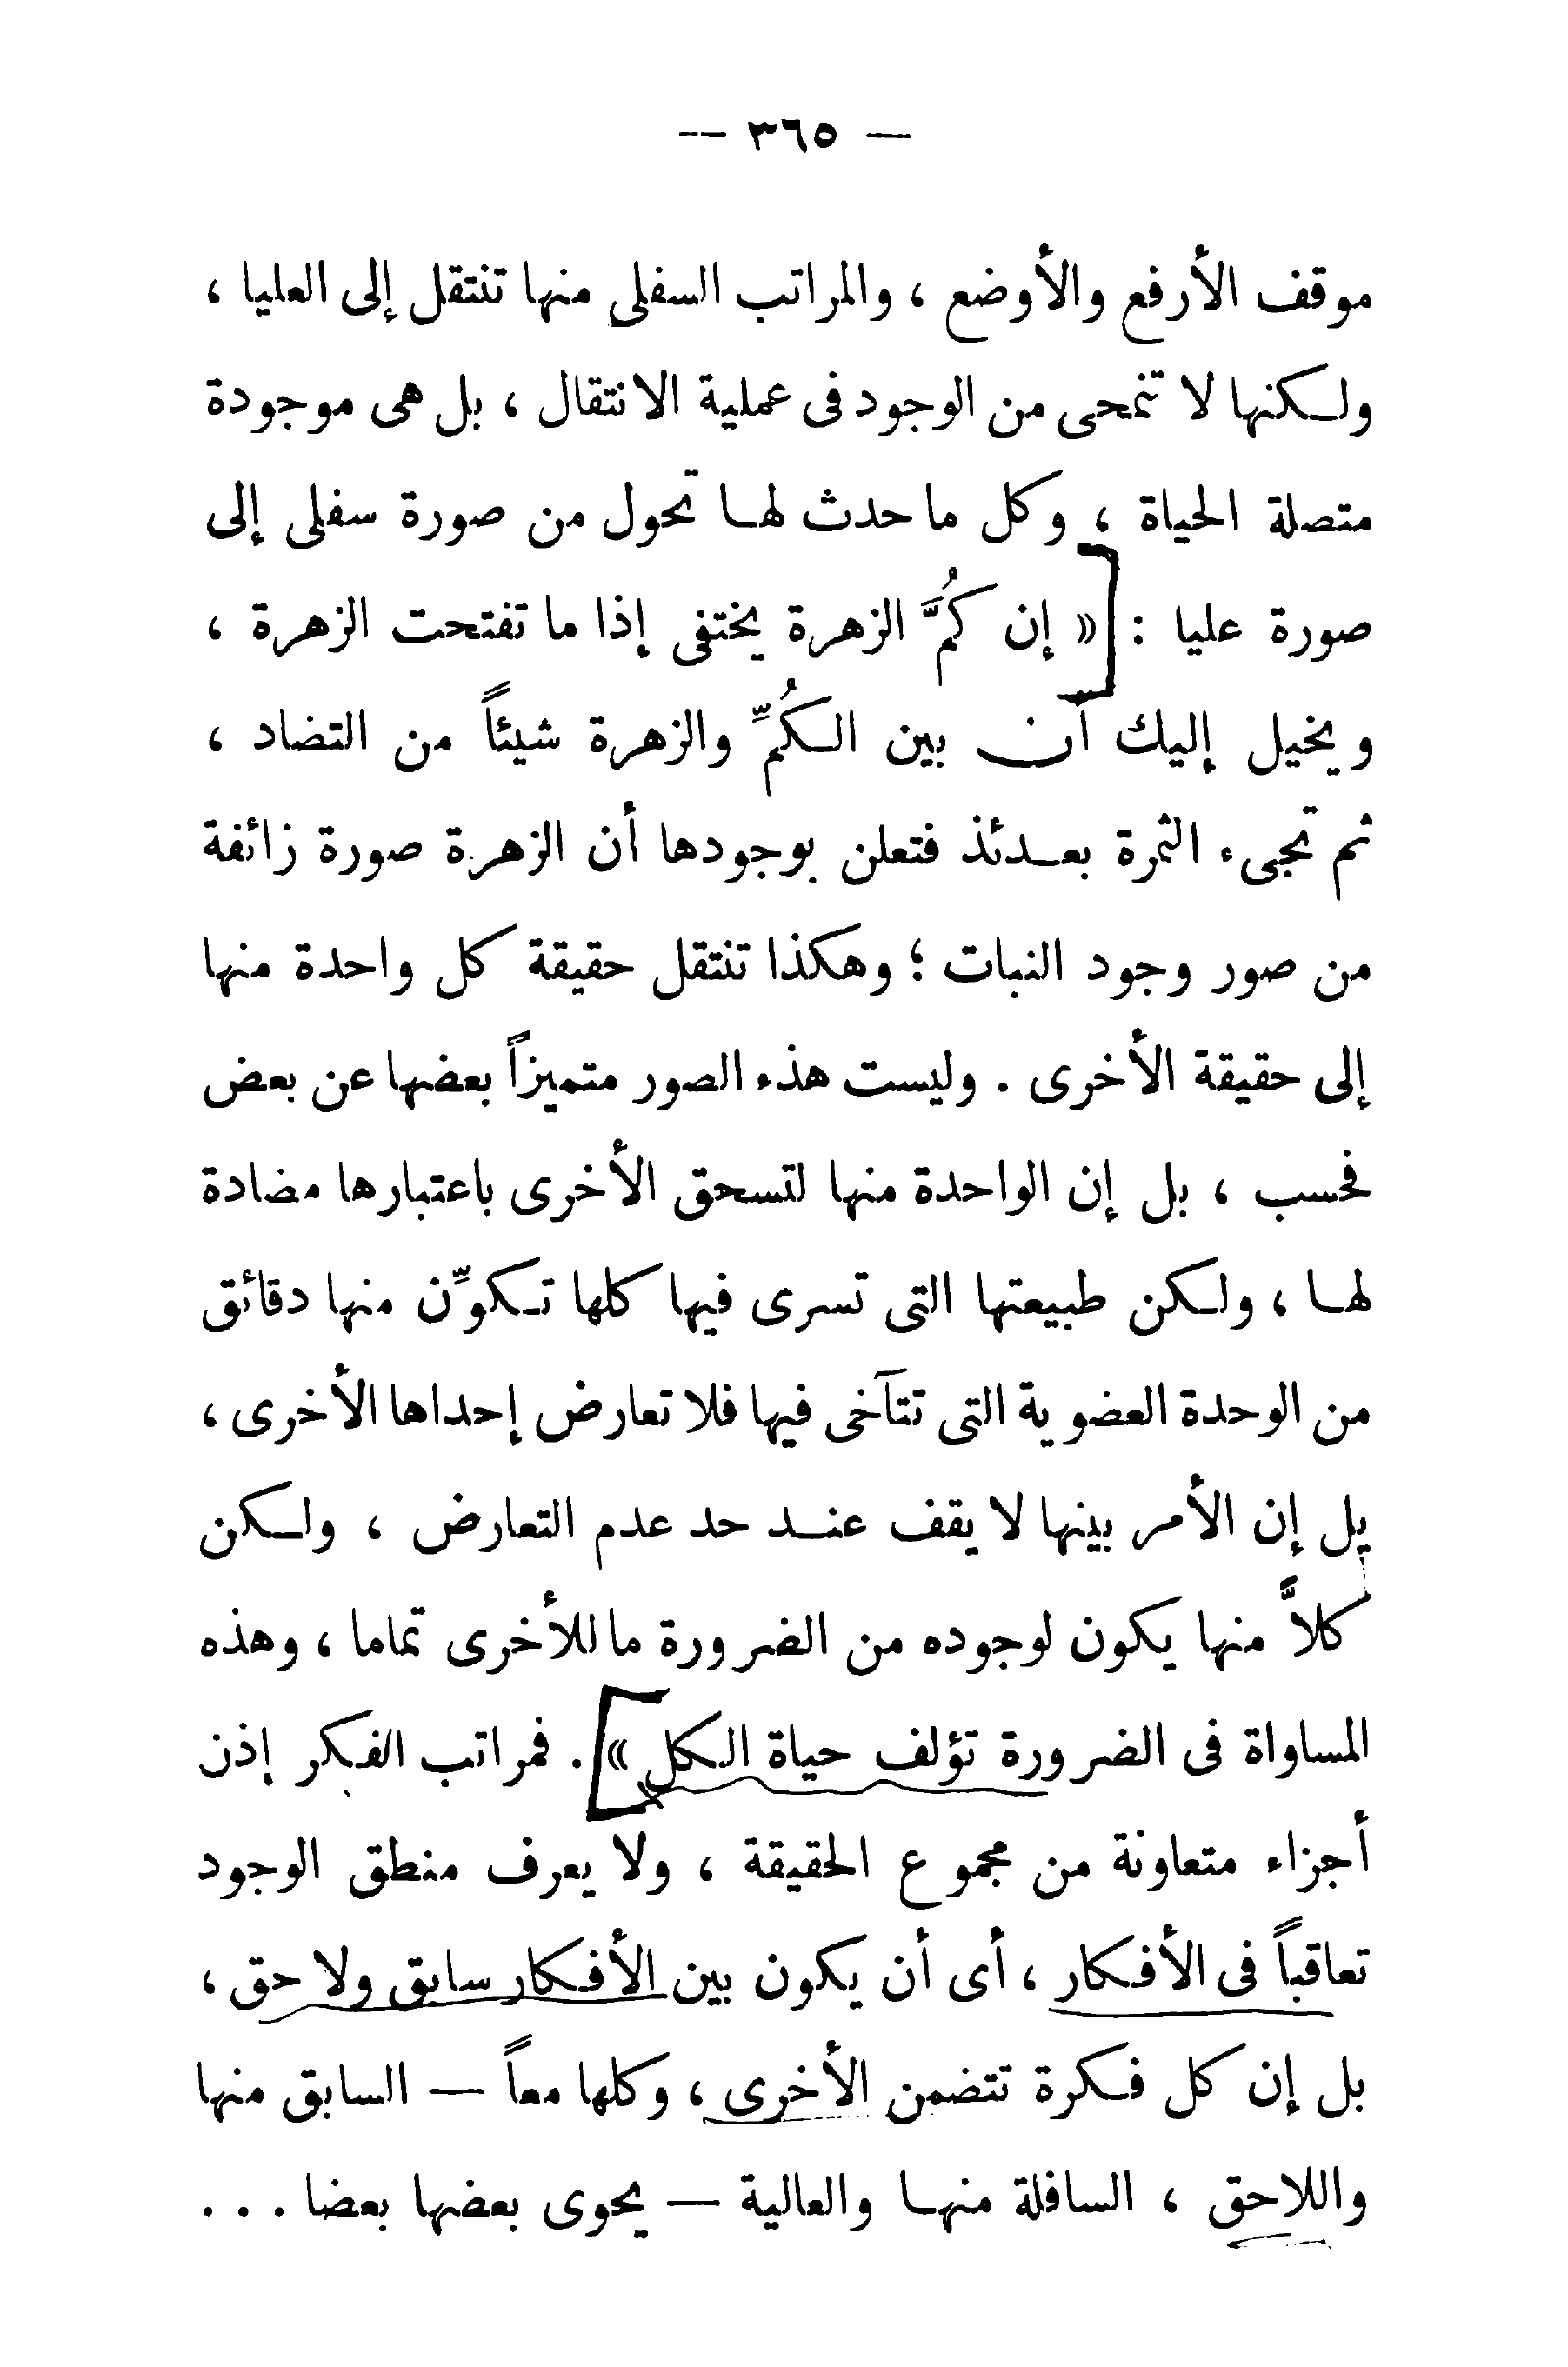 — ٣٦٥ —
موقف الأرفع والأوضع ، والمراتب السفلى منها تنتقل إلى العليا ،
ولكنها لا تنمحى من الوجود فى عملية الانتقال ، بل هى موجودة
متصلة الحياة ، وكل ما حدث لها تحول من صورة سفلى إلى
صورة عليا : « إن كُمَّ الزهرة يختفى إذا ما تفتحت الزهرة ،
ويخيل إليك أن بين الكُمِّ والزهرة شيئاً من التضاد ،
ثم تجىء الثمرة بعدئذ فتعلن بوجودها أن الزهرة صورة زائفة
من صور وجود النبات ؛ وهكذا تنتقل حقيقة كل واحدة منها
إلى حقيقة الأخرى . وليست هذه الصور متميزاً بعضها عن بعض
فحسب ، بل إن الواحدة منها لتسحق الأخرى باعتبارها مضادة
لها ، ولكن طبيعتها التى تسرى فيها كلها تكوِّن منها دقائق
من الوحدة العضوية التى تتآخى فيها فلا تعارض إحداها الأخرى ،
بل إن الأمر بينها لا يقف عند حد عدم التعارض ، ولكن
كلاًّ منها يكون لوجوده من الضرورة ما للأخرى تماما ، وهذه
المساواة فى الضرورة تؤلف حياة الكل » . فمراتب الفكر إذن
أجزاء متعاونة من مجموع الحقيقة ، ولا يعرف منطق الوجود
تعاقباً فى الأفكار ، أى أن يكون بين الأفكار سابق ولاحق ،
بل إن كل فكرة تتضمن الأخرى ، وكلها معاً — السابق منها
واللاحق ، السافلة منها والعالية — يحوى بعضها بعضا . . .